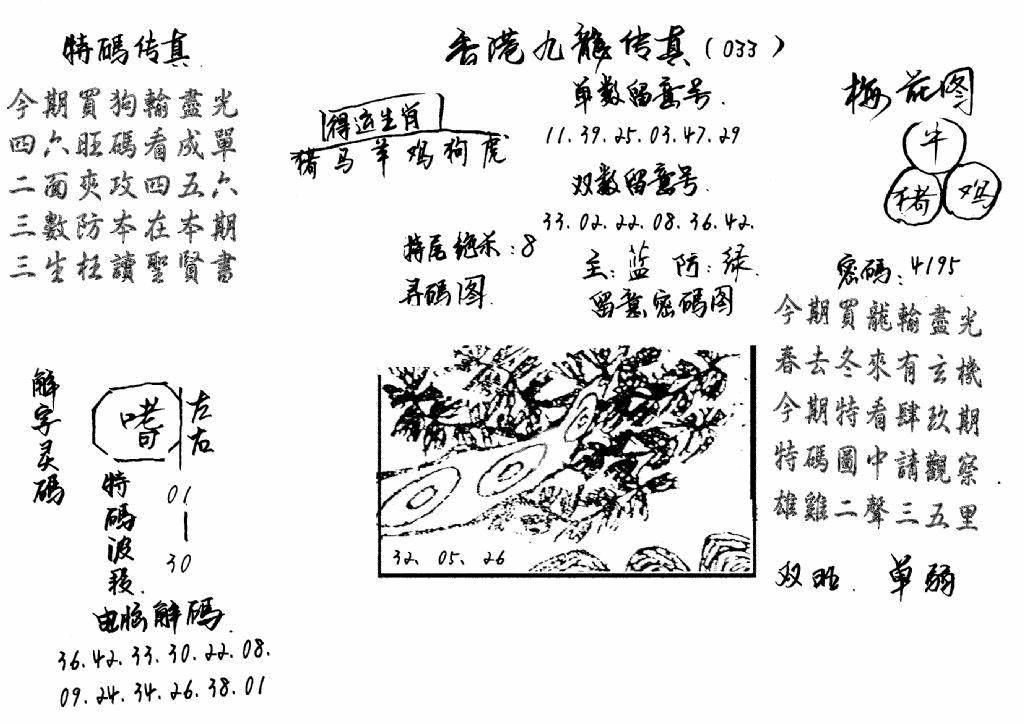 特碼传真
今期買狗輸盡光
四六旺碼看成單
二面夾攻四五六
三數防本在本期
三生枉讀聖賢書
香港九龍传真(033)
得运生肖
猪马羊鸡狗虎
单数留意号.
11.39.25.03.47.29
双数留意号.
33.02.22.08.36.42.
特尾绝杀:8
主:蓝 防:绿.
寻码图.
留意密码图
梅花图
牛
猪 鸡
密码:4195
今期買龍輸盡光
春去冬來有玄機
今期特看肆玖期
特碼圖中請觀察
雄雞二聲三五里
双旺. 单弱
解字灵碼
嗜
左右
特碼波段.
01
30
32.05.26
电脑解碼.
36.42.33.30.22.08.
09.24.34.26.38.01